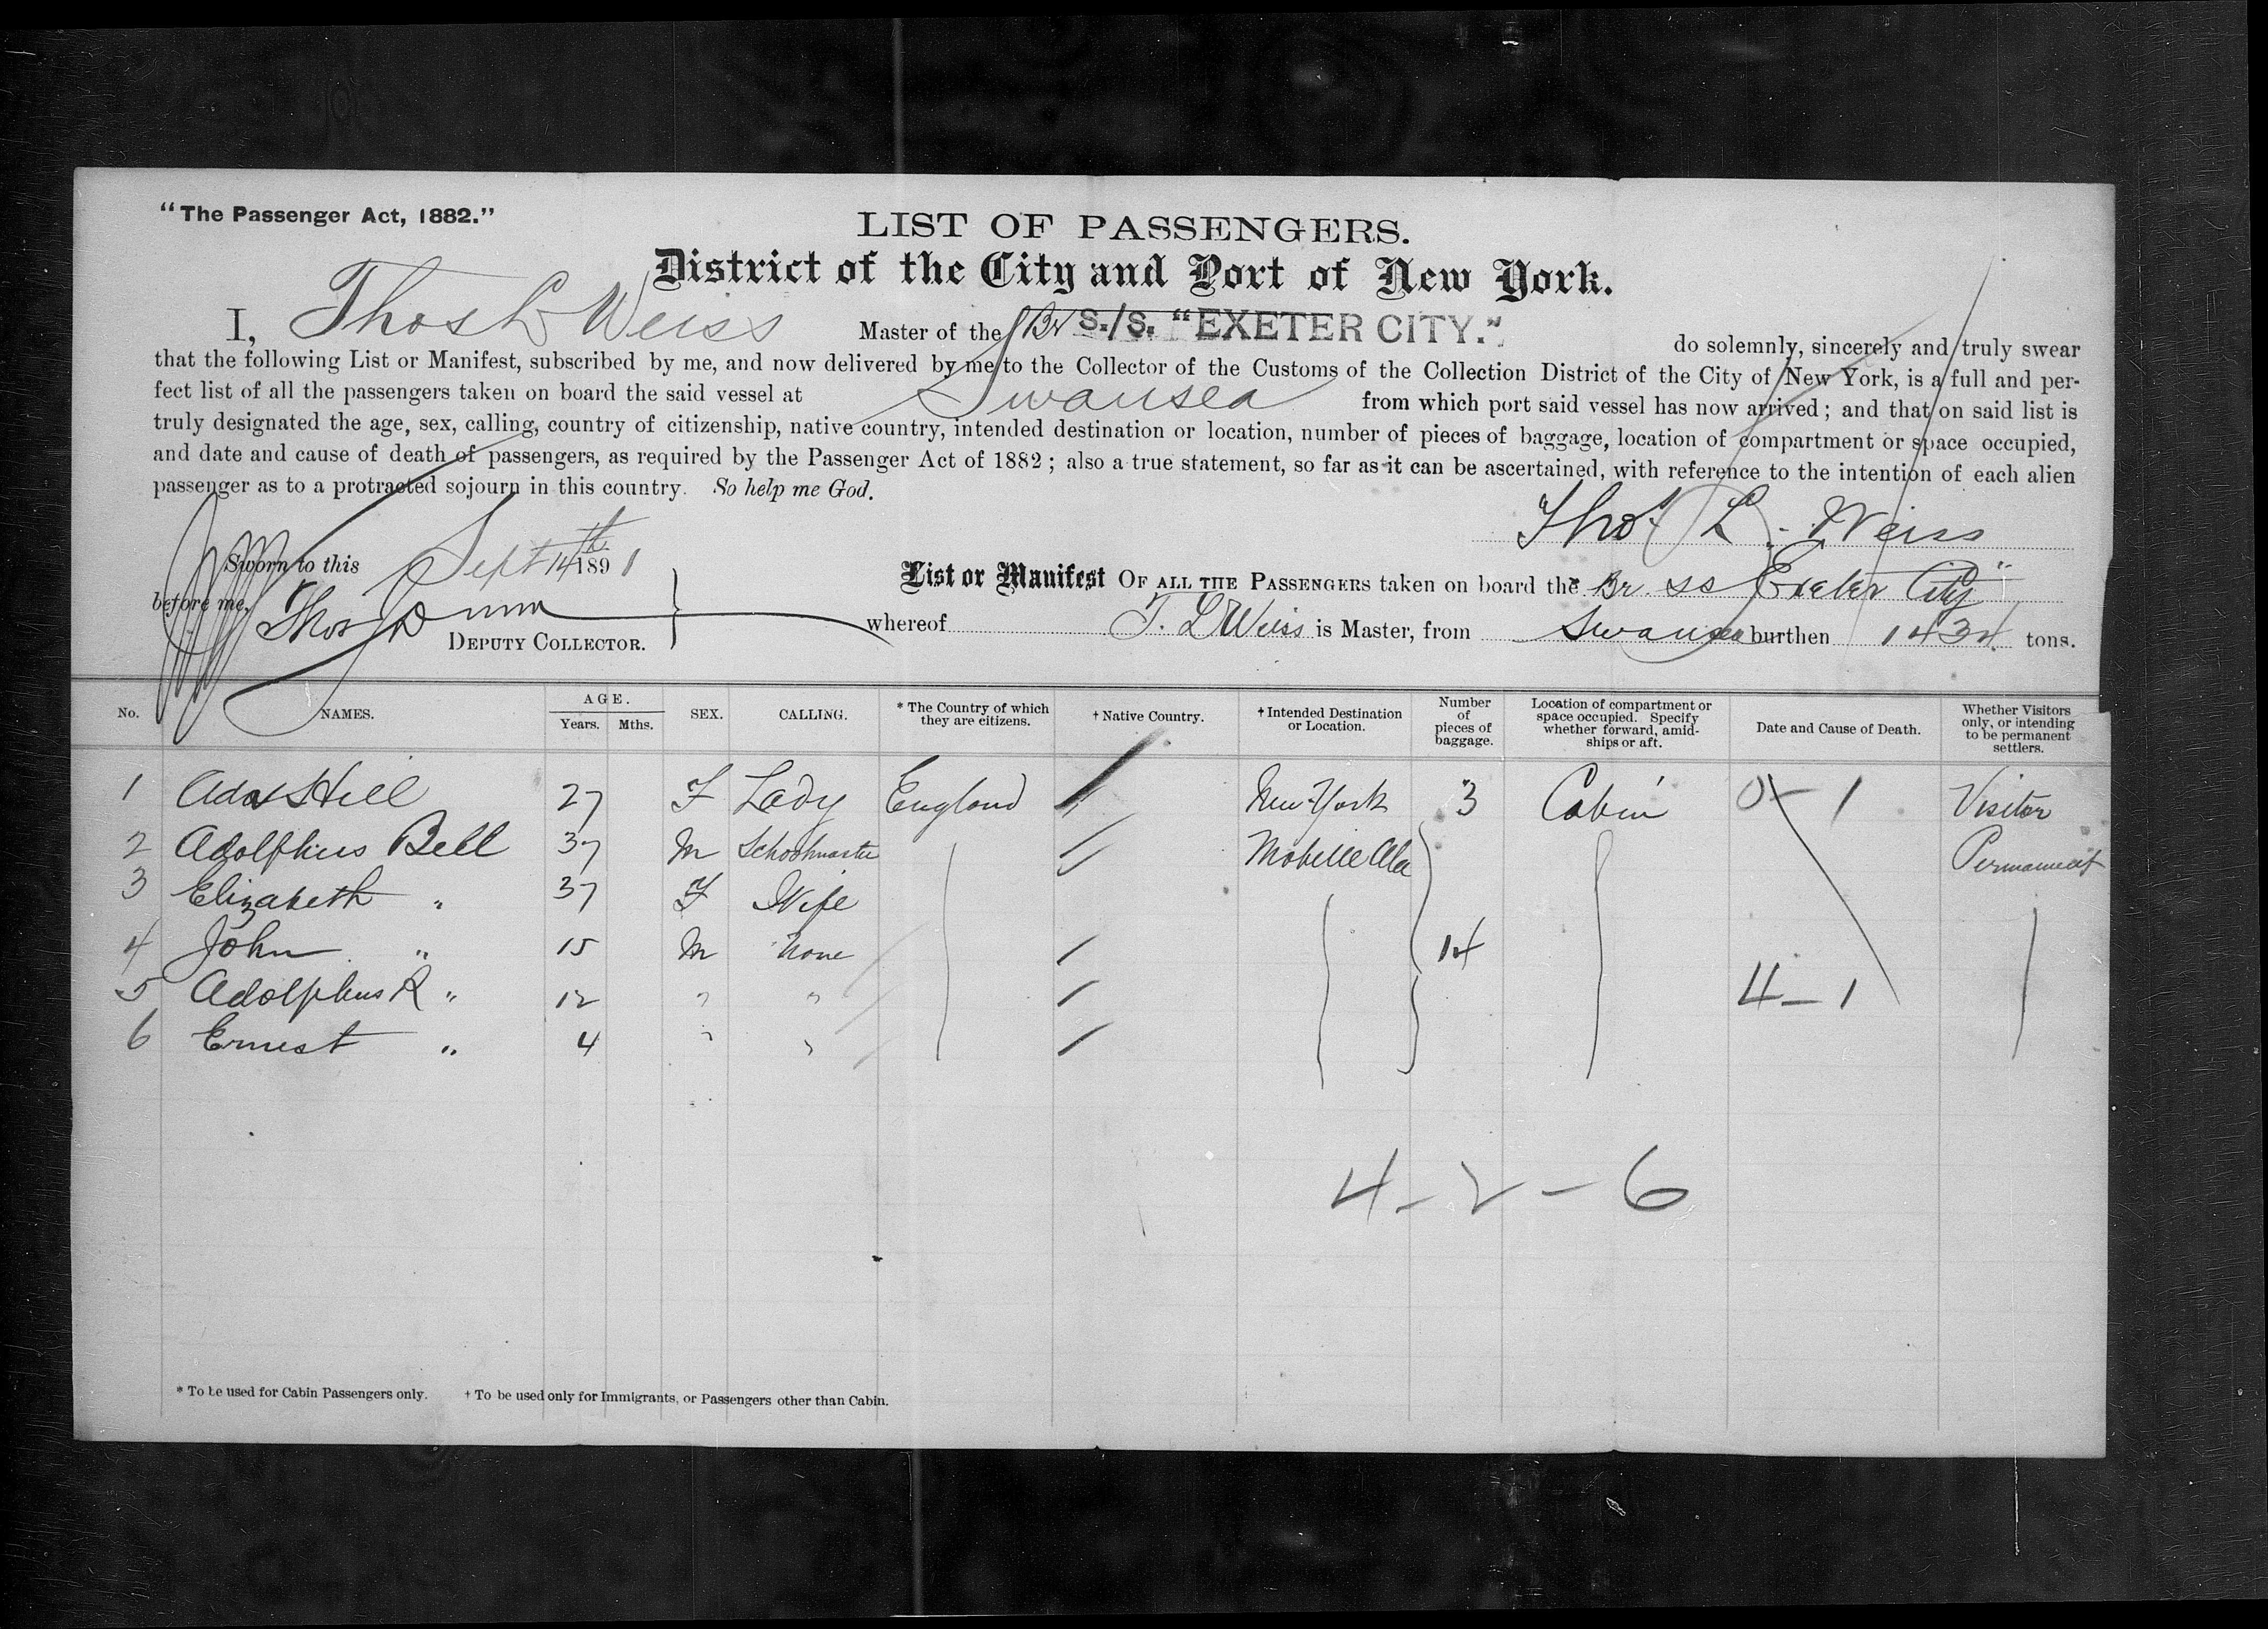 "The Passenger Act, 1882."
LIST OF PASSENGERS.
District of the City and Port of New York.
I, Thos L Weiss Master of the Br S./S. "EXETER CITY." do solemnly, sincerely and truly swear
that the following List or Manifest, subscribed by me, and now delivered by me to the Collector of the Customs of the Collection District of the City of New York, is a full and per-
fect list of all the passengers taken on board the said vessel at Swansea from which port said vessel has now arrived; and that on said list is
truly designated the age, sex, calling, country of citizenship, native country, intended destination or location, number of pieces of baggage, location of compartment or space occupied,
and date and cause of death of passengers, as required by the Passenger Act of 1882; also a true statement, so far as it can be ascertained, with reference to the intention of each alien
passenger as to a protracted sojourn in this country. So help me God.
Thos. L. Weiss
Sworn to this Sept 14th 1891
before me, Thos Dunn
DEPUTY COLLECTOR.
List or Manifest OF ALL THE PASSENGERS taken on board the Br. SS Exeter City"
whereof T. L Weiss is Master, from Swansea burthen 1434 tons.
No. NAMES. AGE. Years. Mths. SEX. CALLING. * The Country of which they are citizens. † Native Country. † Intended Destination or Location. Number of pieces of baggage. Location of compartment or space occupied. Specify whether forward, amid-ships or aft. Date and Cause of Death. Whether Visitors only, or intending to be permanent settlers.
1 Ada Hill 27 F Lady England New York 3 Cabin 0-1 Visitor
2 Adolphus Bell 37 M Schoolmaster Mobille Ala Permanent
3 Elizabeth " 37 F Wife
4 John " 15 M None 14
5 Adolphus R " 12 " " 4-1
6 Ernest " 4 " "
4-2-6
* To be used for Cabin Passengers only. † To be used only for Immigrants, or Passengers other than Cabin.